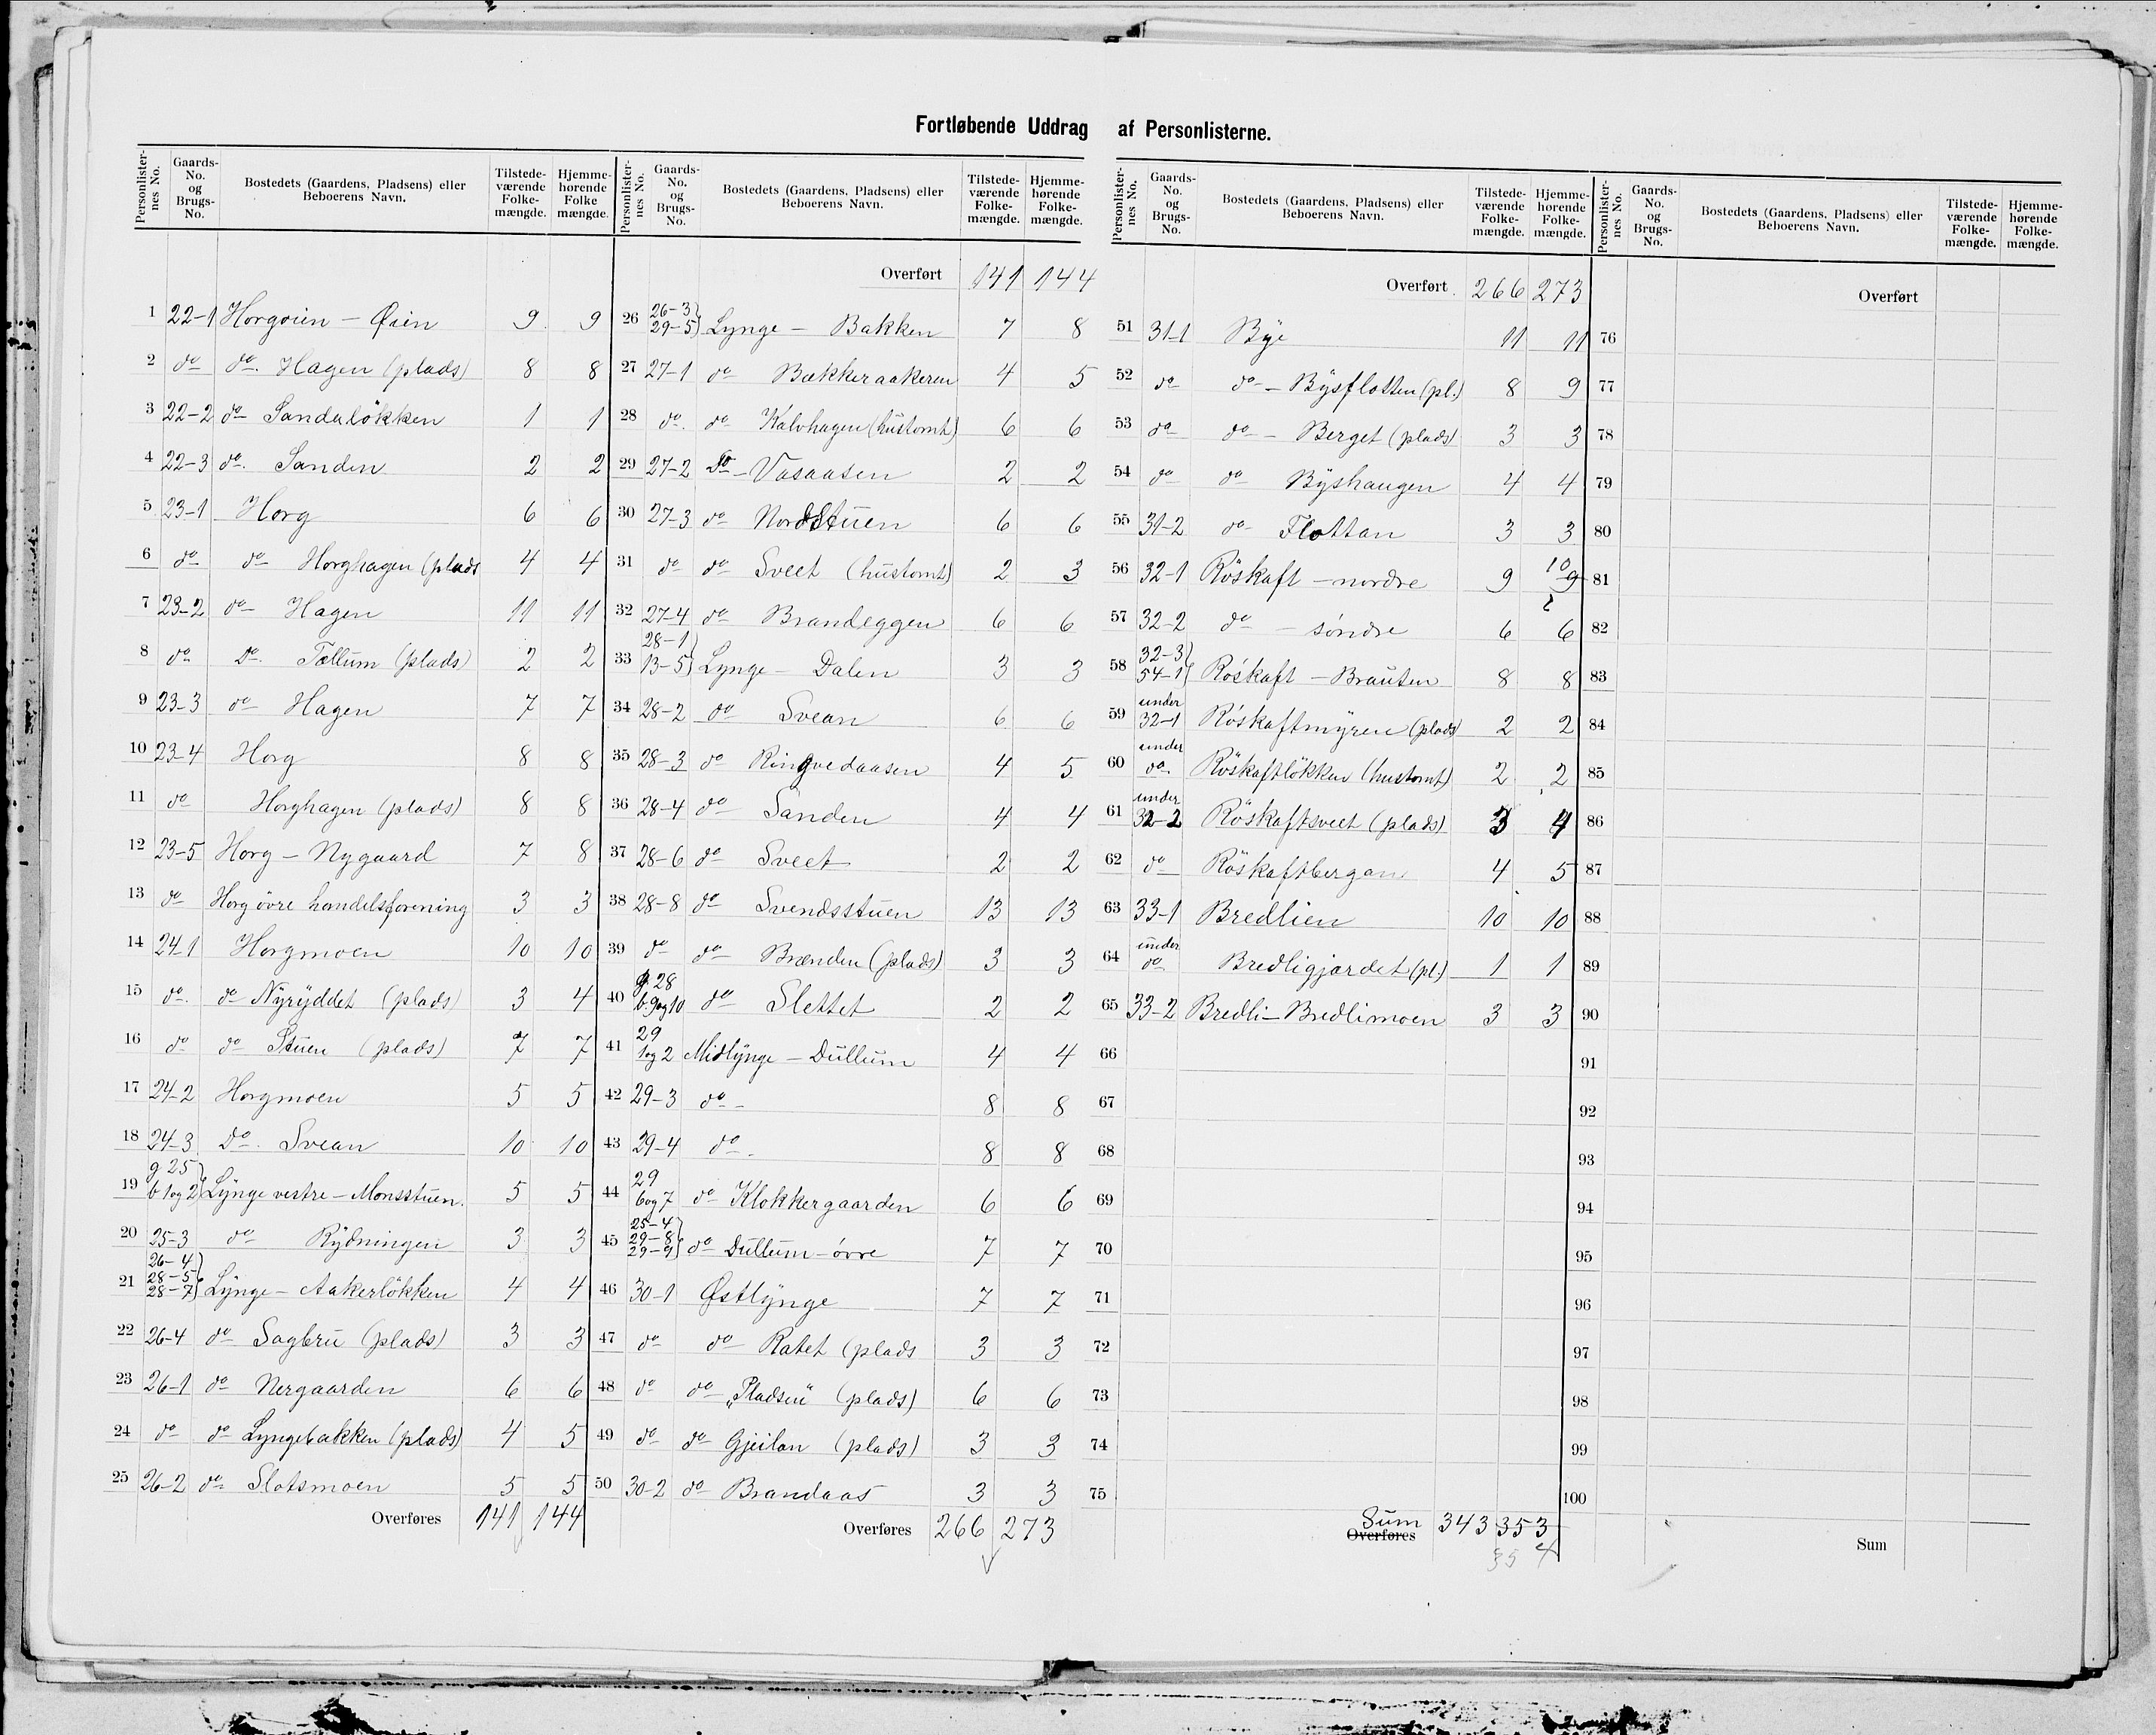 Fortløbende Uddrag af Personlisterne.
Personlisternes No. | Gaards-No. og Brugs-No. | Bostedets (Gaardens, Pladsens) eller Beboerens Navn. | Tilstedeværende Folkemængde. | Hjemmehørende Folkemængde.
1 22-1 Horgoien - Øien 9 9
2 do do. Hagen (plads) 8 8
3 22-2 do Sandaløkken 1 1
4 22-3 do. Sanden 2 2
5 23-1 Horg 6 6
6 do do Horghagen (plads 4 4
7 23-2 do Hagen 11 11
8 do Do. Tællum (plads) 2 2
9 23-3 do Hagen 7 7
10 23-4 Horg 8 8
11 do Horghagen (plads) 8 8
12 23-5 Horg - Nygaard 7 8
13 do Horg övre handelsforening 3 3
14 24-1 Horgmoen 10 10
15 do. do Nyrÿddet (plads) 3 4
16 do do Stuen (plads) 7 7
17 24-2 Horgmoen 5 5
18 24-3 Do. Svean 10 10
19 g 25 b 1 og 2 Lÿnge vestre - Monsstuen. 5 5
20 25-3 do Rÿdningen 3 3
21 26-4 28-5 28-7 Lÿnge - Aakerlökken 4 4
22 26-4 do Sagbru (plads) 3 3
23 26-1 do Nergaarden 6 6
24 do do Lyngebakken (plads) 4 5
25 26-2 do Slotsmoen 5 5
Overføres 141 144
Overført 141 144
26 26-3 29-5 Lynge - Bakken 7 8
27 27-1 do Bækkeraakeren 4 5
28 do. do Kalvhagen (hustomt) 6 6
29 27-2 Do - Vasaasen 2 2
30 27-3 do Nordstuen 6 6
31 do do Sveet (hustomt) 2 3
32 27-4 do Brandeggen 6 6
33 28-1 13-5 Lynge - Dalen 3 3
34 28-2 do Svean 6 6
35 28-3 do Ringvedaasen 4 5
36 28-4 do Sanden 4 4
37 28-6 do Sveet 2 2
38 28-8 do Svendsstuen 13 13
39 do do Brænden (plads) 3 3
40 g. 28 b. 9 og 10 do Slettet 2 2
41 29 1 og 2 Midlÿnge - Dullum 4 4
42 29-3 do - 8 8
43 29-4 do. 8 8
44 29 6 og 7 do Klokkergaarden 6 6
45 25-4 29-8 29-9 do Dullum - övre 7 7
46 30-1 Østlÿnge 7 7
47 do do Ratet (plads 3 3
48 do do „Pladsen“ (plads) 6 6
49 do do Gjeilan (plads) 3 3
50 30-2 do Brandaas 3 3
Overføres 266 273
Overført 266 273
51 31-1 Bÿe 11 11
52 do do - Bÿsflotten (pl.) 8 9
53 do do - Berget (plads) 3 3
54 do do Bÿshaugen 4 4
55 31-2 do Flottan 3 3
56 32-1 Röskaft - nordre 9 10 9
57 32-2 do - söndre 6 6
58 32-3 54-1 Röskaft - Brauten 8 8
59 under 32-1 Röskaftmÿren (plads) 2 2
60 under do. Röskaftlökken (hustomt) 2 2
61 under 32-2 Röskaftsveet (plads) 3 4
62 do Röskaftbergan 4 5
63 33-1 Bredlien 10 10
64 under do Bredligjærdet (pl.) 1 1
65 33-2 Bredli - Bredlimoen 3 3
66
67
68
69
70
71
72
73
74
75
Sum Overføres 343 353
35 4
Overført
76
77
78
79
80
81
82
83
84
85
86
87
88
89
90
91
92
93
94
95
96
97
98
99
100
Sum